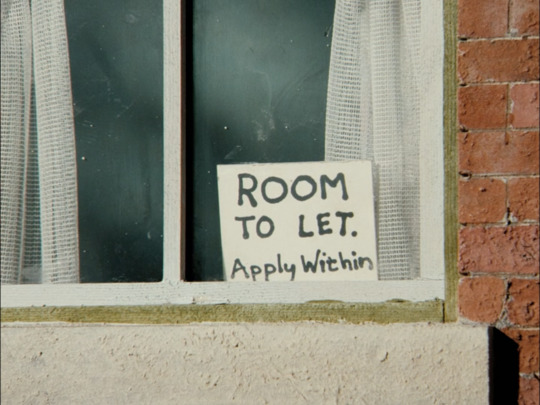 ROOM
TO LET.
Apply Within